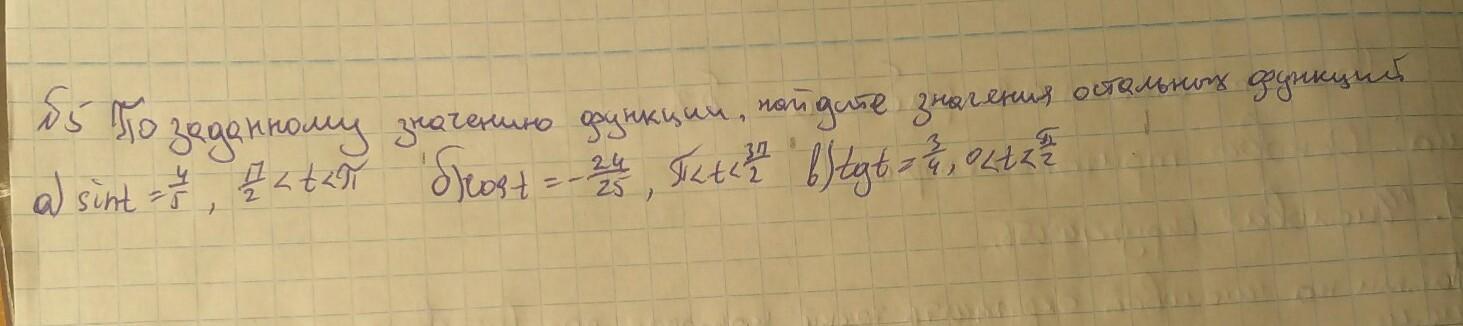 №5 По заданному значению функции, найдите значения остальных функций
а) sint = 4/5, π/2 < t < π б) cost = -24/25, π < t < 3π/2 в) tgt = 3/4, 0 < t < π/2